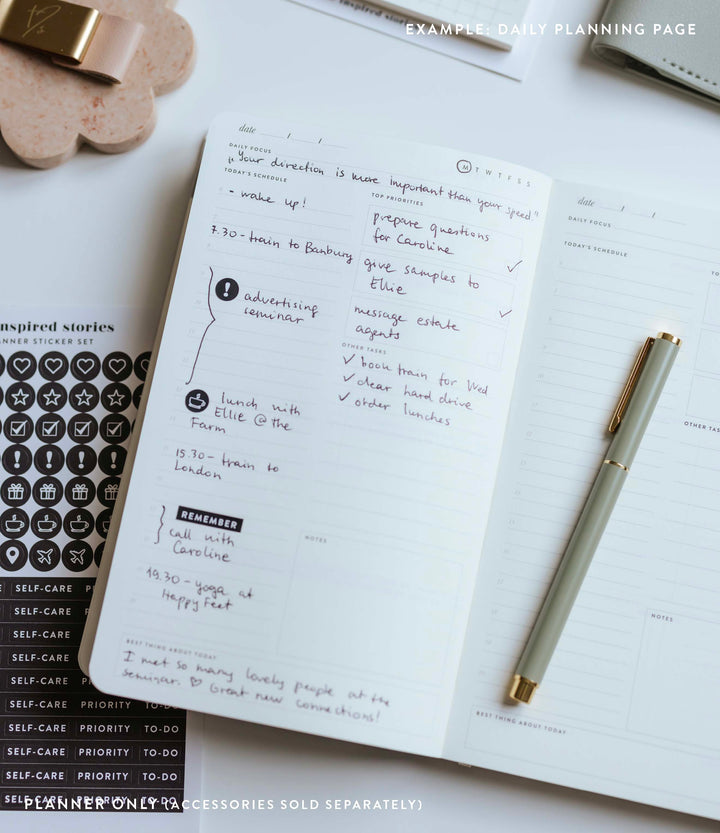 EXAMPLE: DAILY PLANNING PAGE
date / /
M T W T F S S
DAILY FOCUS
"Your direction is more important than your speed"
TODAY'S SCHEDULE
- wake up!
7.30 - train to Banbury
advertising
seminar
lunch with
Ellie @ the
Farm
15.30 - train to
London
REMEMBER
call with
Caroline
19.30 - yoga at
Happy Feet
TOP PRIORITIES
prepare questions
for Caroline
give samples to
Ellie
message estate
agents
OTHER TASKS
book train for Wed
clear hard drive
order lunches
NOTES
BEST THING ABOUT TODAY
I met so many lovely people at the
seminar. ♡ Great new connections!
date / /
DAILY FOCUS
TODAY'S SCHEDULE
OTHER TAS
NOTES
BEST THING ABOUT TODAY
inspired stories
nspired stories
NNER STICKER SET
SELF-CARE P
SELF-CARE
SELF-CARE
SELF-CARE
SELF-CARE
SELF-CARE PRIORITY TO-DO
SELF-CARE PRIORITY TO-DO
SELF-CARE PRIORITY TO-DO
SELF-CARE PRIORITY TO-DO
SELF-CARE PRIORITY TO-DO
PLANNER ONLY (ACCESSORIES SOLD SEPARATELY)